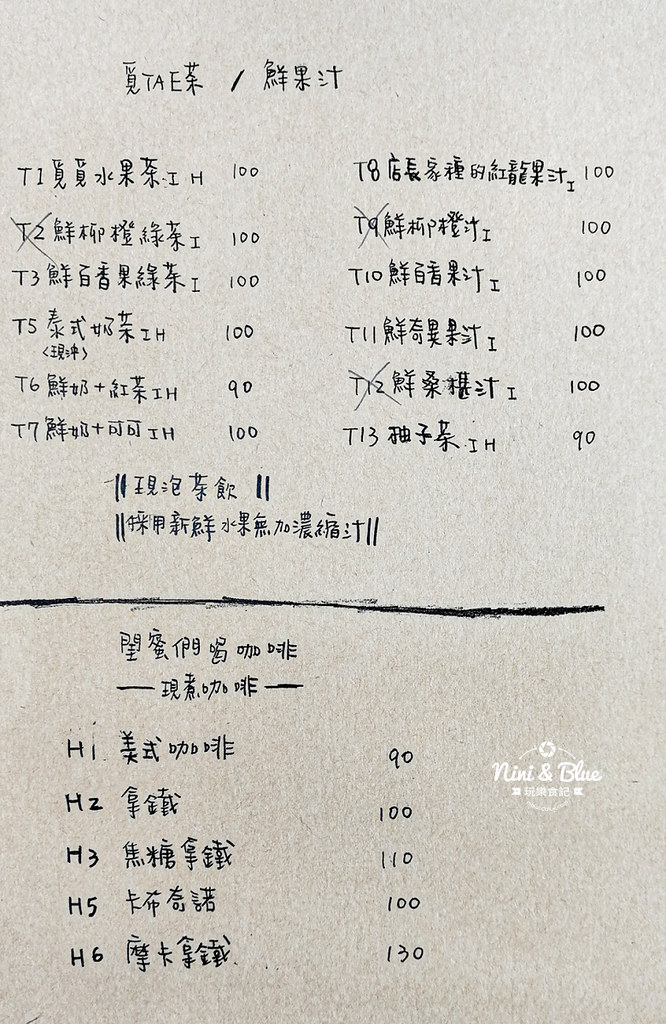 覓TAE茶 / 鮮果汁
T1 覓覓水果茶 I H 100
T2 鮮柳橙綠茶 I 100
T3 鮮百香果綠茶 I 100
T5 泰式奶茶 I H 100
<現沖>
T6 鮮奶+紅茶 I H 90
T7 鮮奶+可可 I H 100
T8 店長家種的紅龍果汁 I 100
T9 鮮柳橙汁 I 100
T10 鮮百香果汁 I 100
T11 鮮奇異果汁 I 100
T12 鮮桑椹汁 I 100
T13 柚子茶 I H 90
||現泡茶飲||
||採用新鮮水果無加濃縮汁||
閨蜜們喝咖啡
—現煮咖啡—
H1 美式咖啡 90
H2 拿鐵 100
H3 焦糖拿鐵 110
H5 卡布奇諾 100
H6 摩卡拿鐵 130
Nini & Blue
玩樂食記